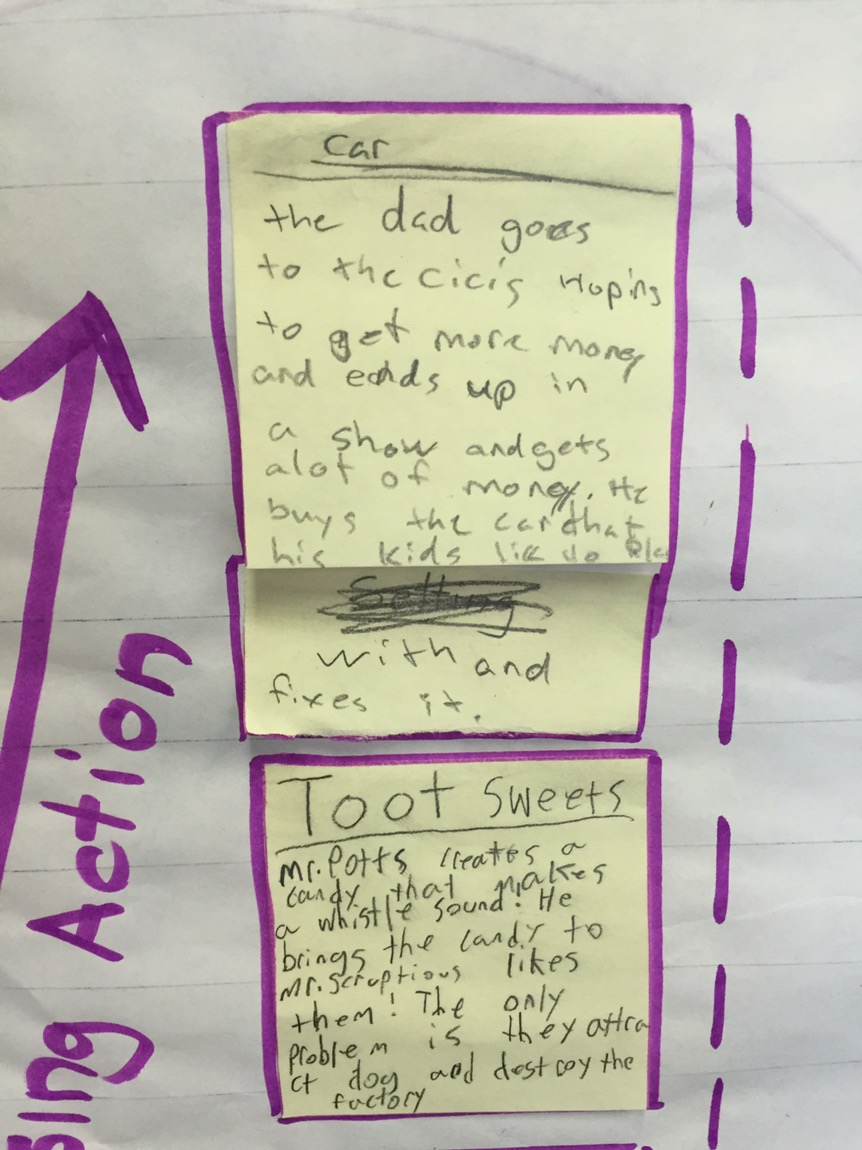 Car
the dad goes
to the Cici's Hoping
to get more money
and ends up in
a show and gets
alot of money. He
buys the car that
his kids like to Pla
Setting
with and
fixes it.
Toot Sweets
Mr. Potts creates a
candy that makes
a whistle sound! He
brings the candy to
Mr. Scruptious likes
them! The only
problem is they attra
ct dog and destroy the
factory
sing Action